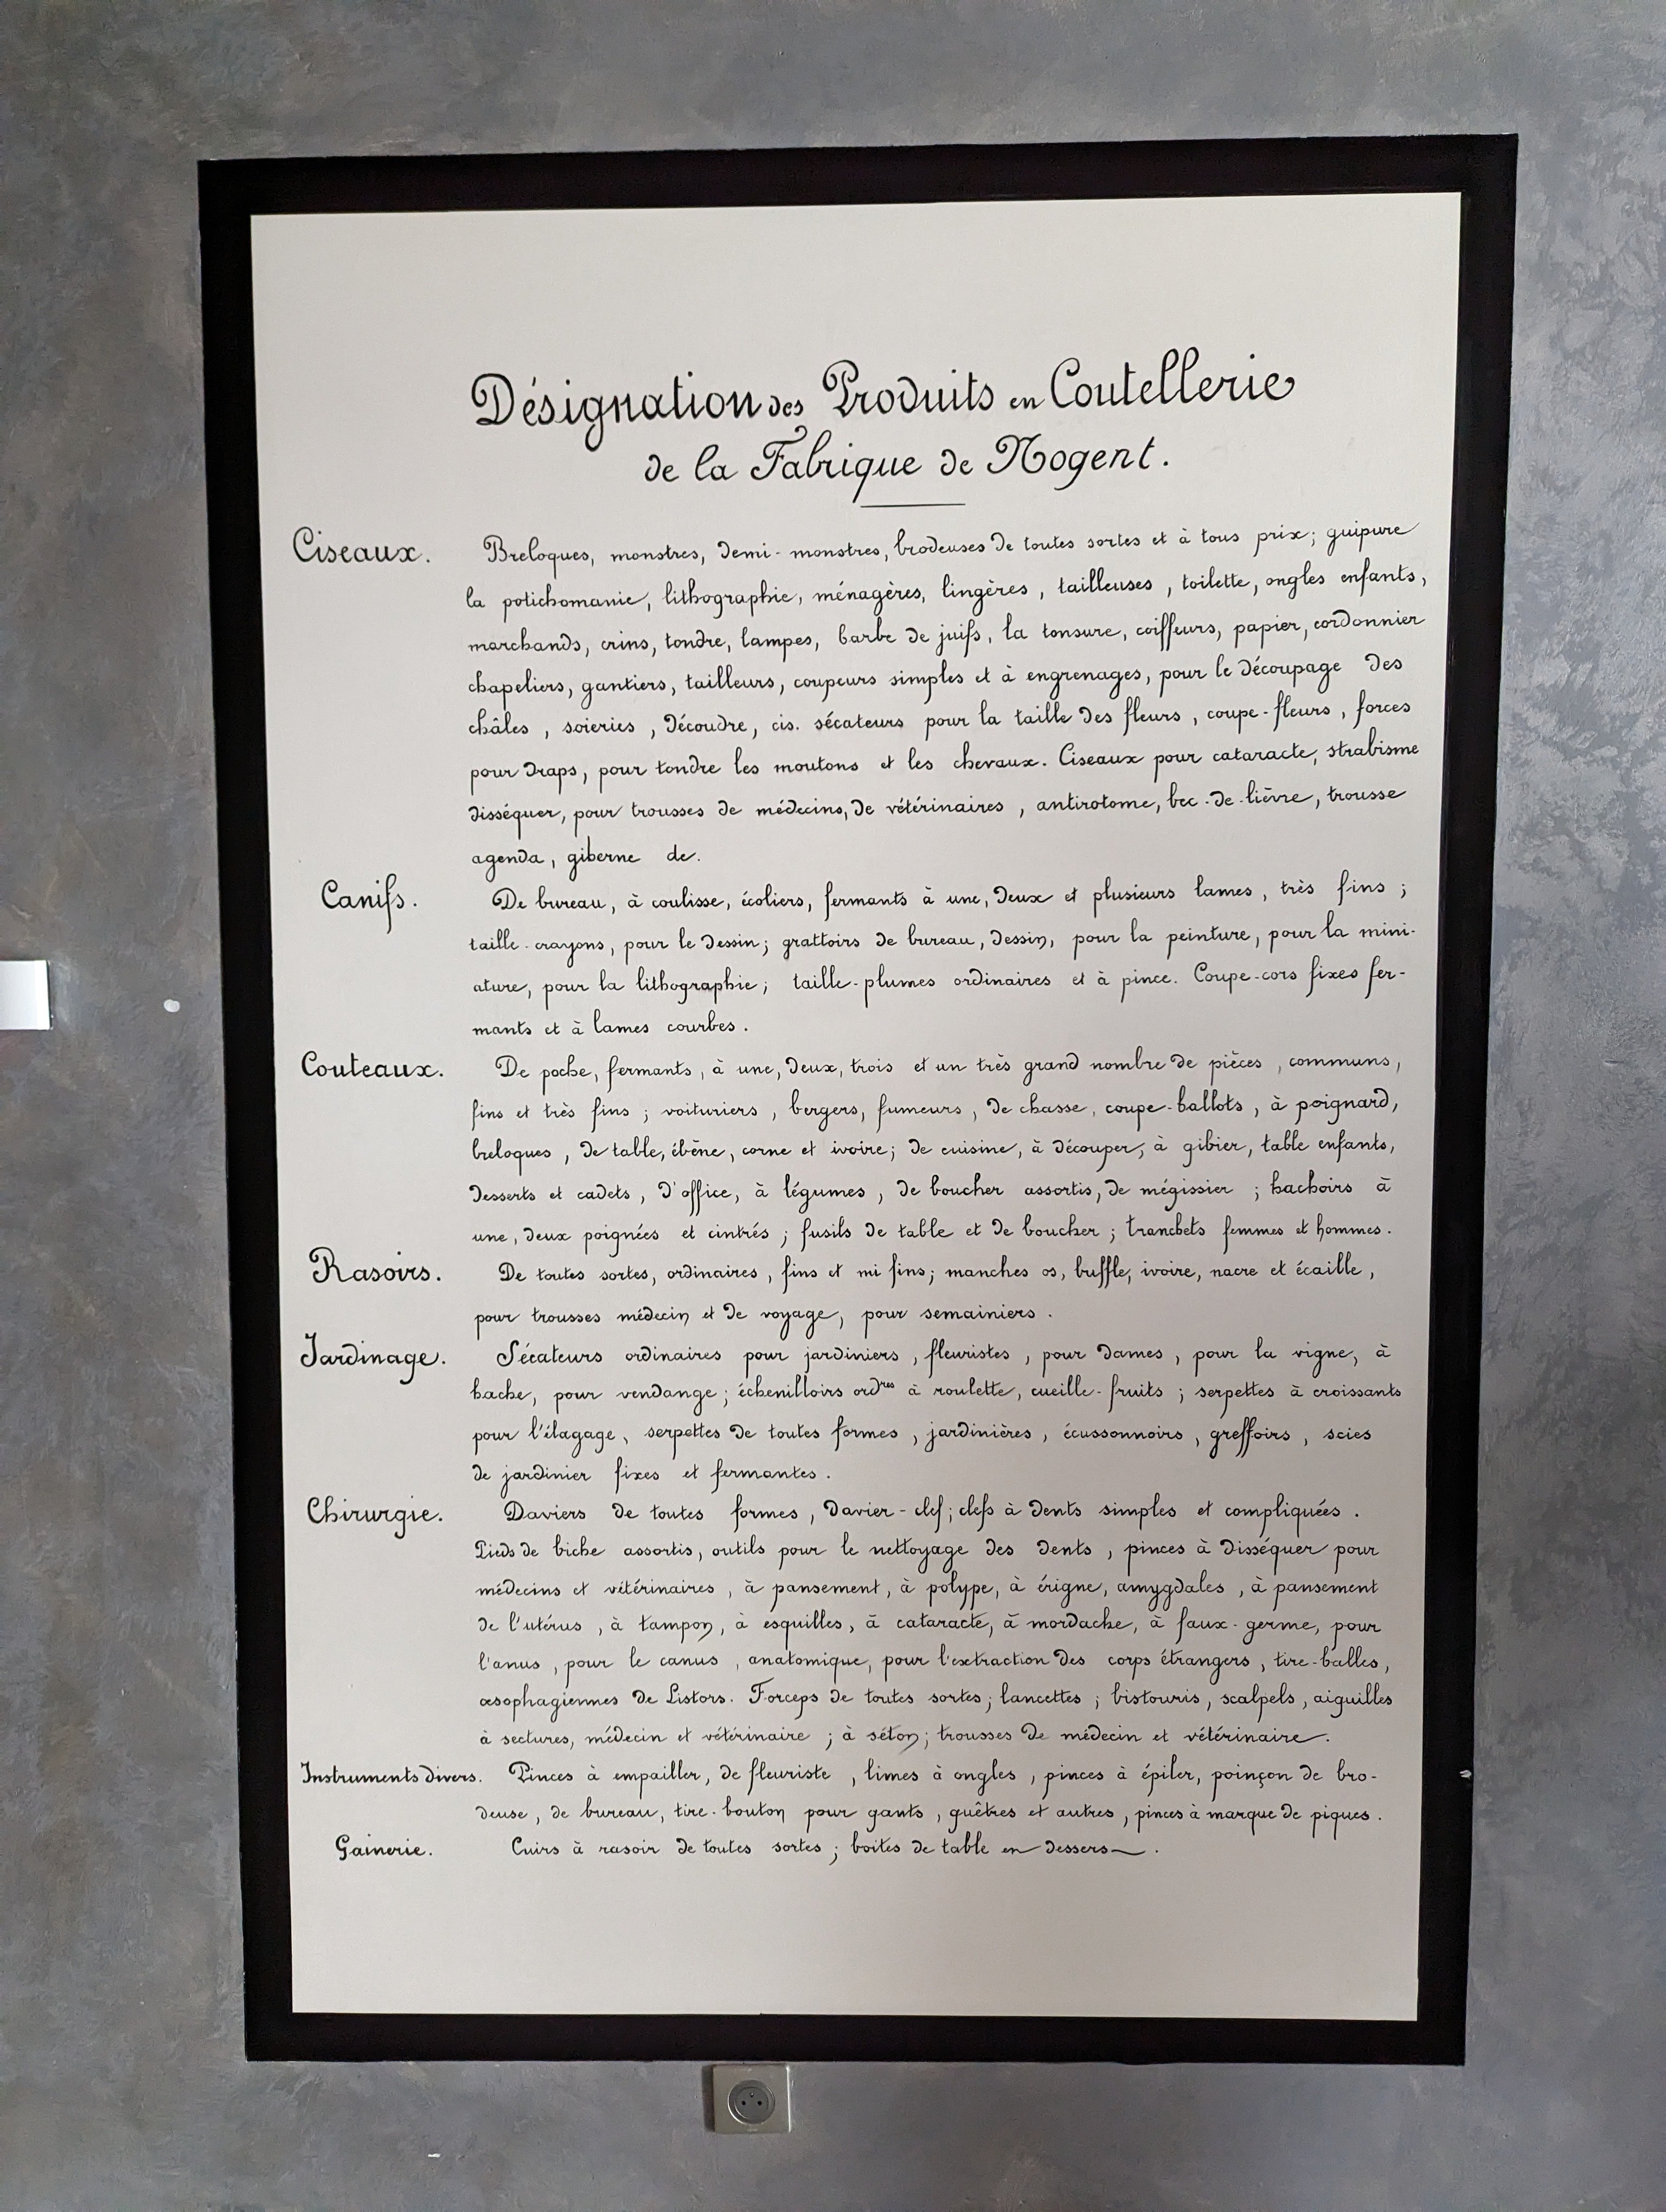 Désignation des Produits en Coutellerie
de la Fabrique de Nogent.
Ciseaux. Breloques, monstres, demi-monstres, brodeuses de toutes sortes et à tous prix; guipure
la potichomanie, lithographie, ménagères, lingères, tailleuses, toilette, ongles enfants,
marchands, crins, tondre, lampes, barbe de juifs, la tonsure, coiffeurs, papier, cordonnier
chapeliers, gantiers, tailleurs, coupeurs simples et à engrenages, pour le découpage des
châles, soieries, découdre, cis. sécateurs pour la taille des fleurs, coupe-fleurs, forces
pour draps, pour tondre les moutons et les chevaux. Ciseaux pour cataracte, strabisme
disséquer, pour trousses de médecins, de vétérinaires, antirotome, bec-de-lièvre, trousse
agenda, giberne de.
Canifs. De bureau, à coulisse, écoliers, fermants à une, deux et plusieurs lames, très fins;
taille-crayons, pour le dessin; grattoirs de bureau, dessin, pour la peinture, pour la mini-
ature, pour la lithographie; taille-plumes ordinaires et à pince. Coupe-cors fixes fer-
mants et à lames courbes.
Couteaux. De poche, fermants, à une, deux, trois et un très grand nombre de pièces, communs,
fins et très fins; voituriers, bergers, fumeurs, de chasse, coupe-ballots, à poignard,
breloques, de table, ébène, corne et ivoire; de cuisine, à découper, à gibier, table enfants,
desserts et cadets, d'office, à légumes, de boucher assortis, de mégissier; hachoirs à
une, deux poignées et cintrés; fusils de table et de boucher; tranchets femmes et hommes.
Rasoirs. De toutes sortes, ordinaires, fins et mi fins; manches os, buffle, ivoire, nacre et écaille,
pour trousses médecin et de voyage, pour semainiers.
Jardinage. Sécateurs ordinaires pour jardiniers, fleuristes, pour dames, pour la vigne, à
hache, pour vendange; échenilloirs ordres à roulette, cueille-fruits; serpettes à croissants
pour l'élagage, serpettes de toutes formes, jardinières, écussonnoirs, greffoirs, scies
de jardinier fixes et fermantes.
Chirurgie. Daviers de toutes formes, davier-clef; clefs à dents simples et compliquées.
Pieds de biche assortis, outils pour le nettoyage des dents, pinces à disséquer pour
médecins et vétérinaires, à pansement, à polype, à érigne, amygdales, à pansement
de l'utérus, à tampon, à esquilles, à cataracte, à mordache, à faux-germe, pour
l'anus, pour le canus, anatomique, pour l'extraction des corps étrangers, tire-balles,
œsophagiennes de Listors. Forceps de toutes sortes; lancettes; bistouris, scalpels, aiguilles
à sectures, médecin et vétérinaire; à séton; trousses de médecin et vétérinaire.
Instruments divers. Pinces à empailler, de fleuriste, limes à ongles, pinces à épiler, poinçon de bro-
deuse, de bureau, tire-bouton pour gants, guêtres et autres, pinces à marque de piques.
Gainerie. Cuirs à rasoir de toutes sortes; boites de table en dessers.